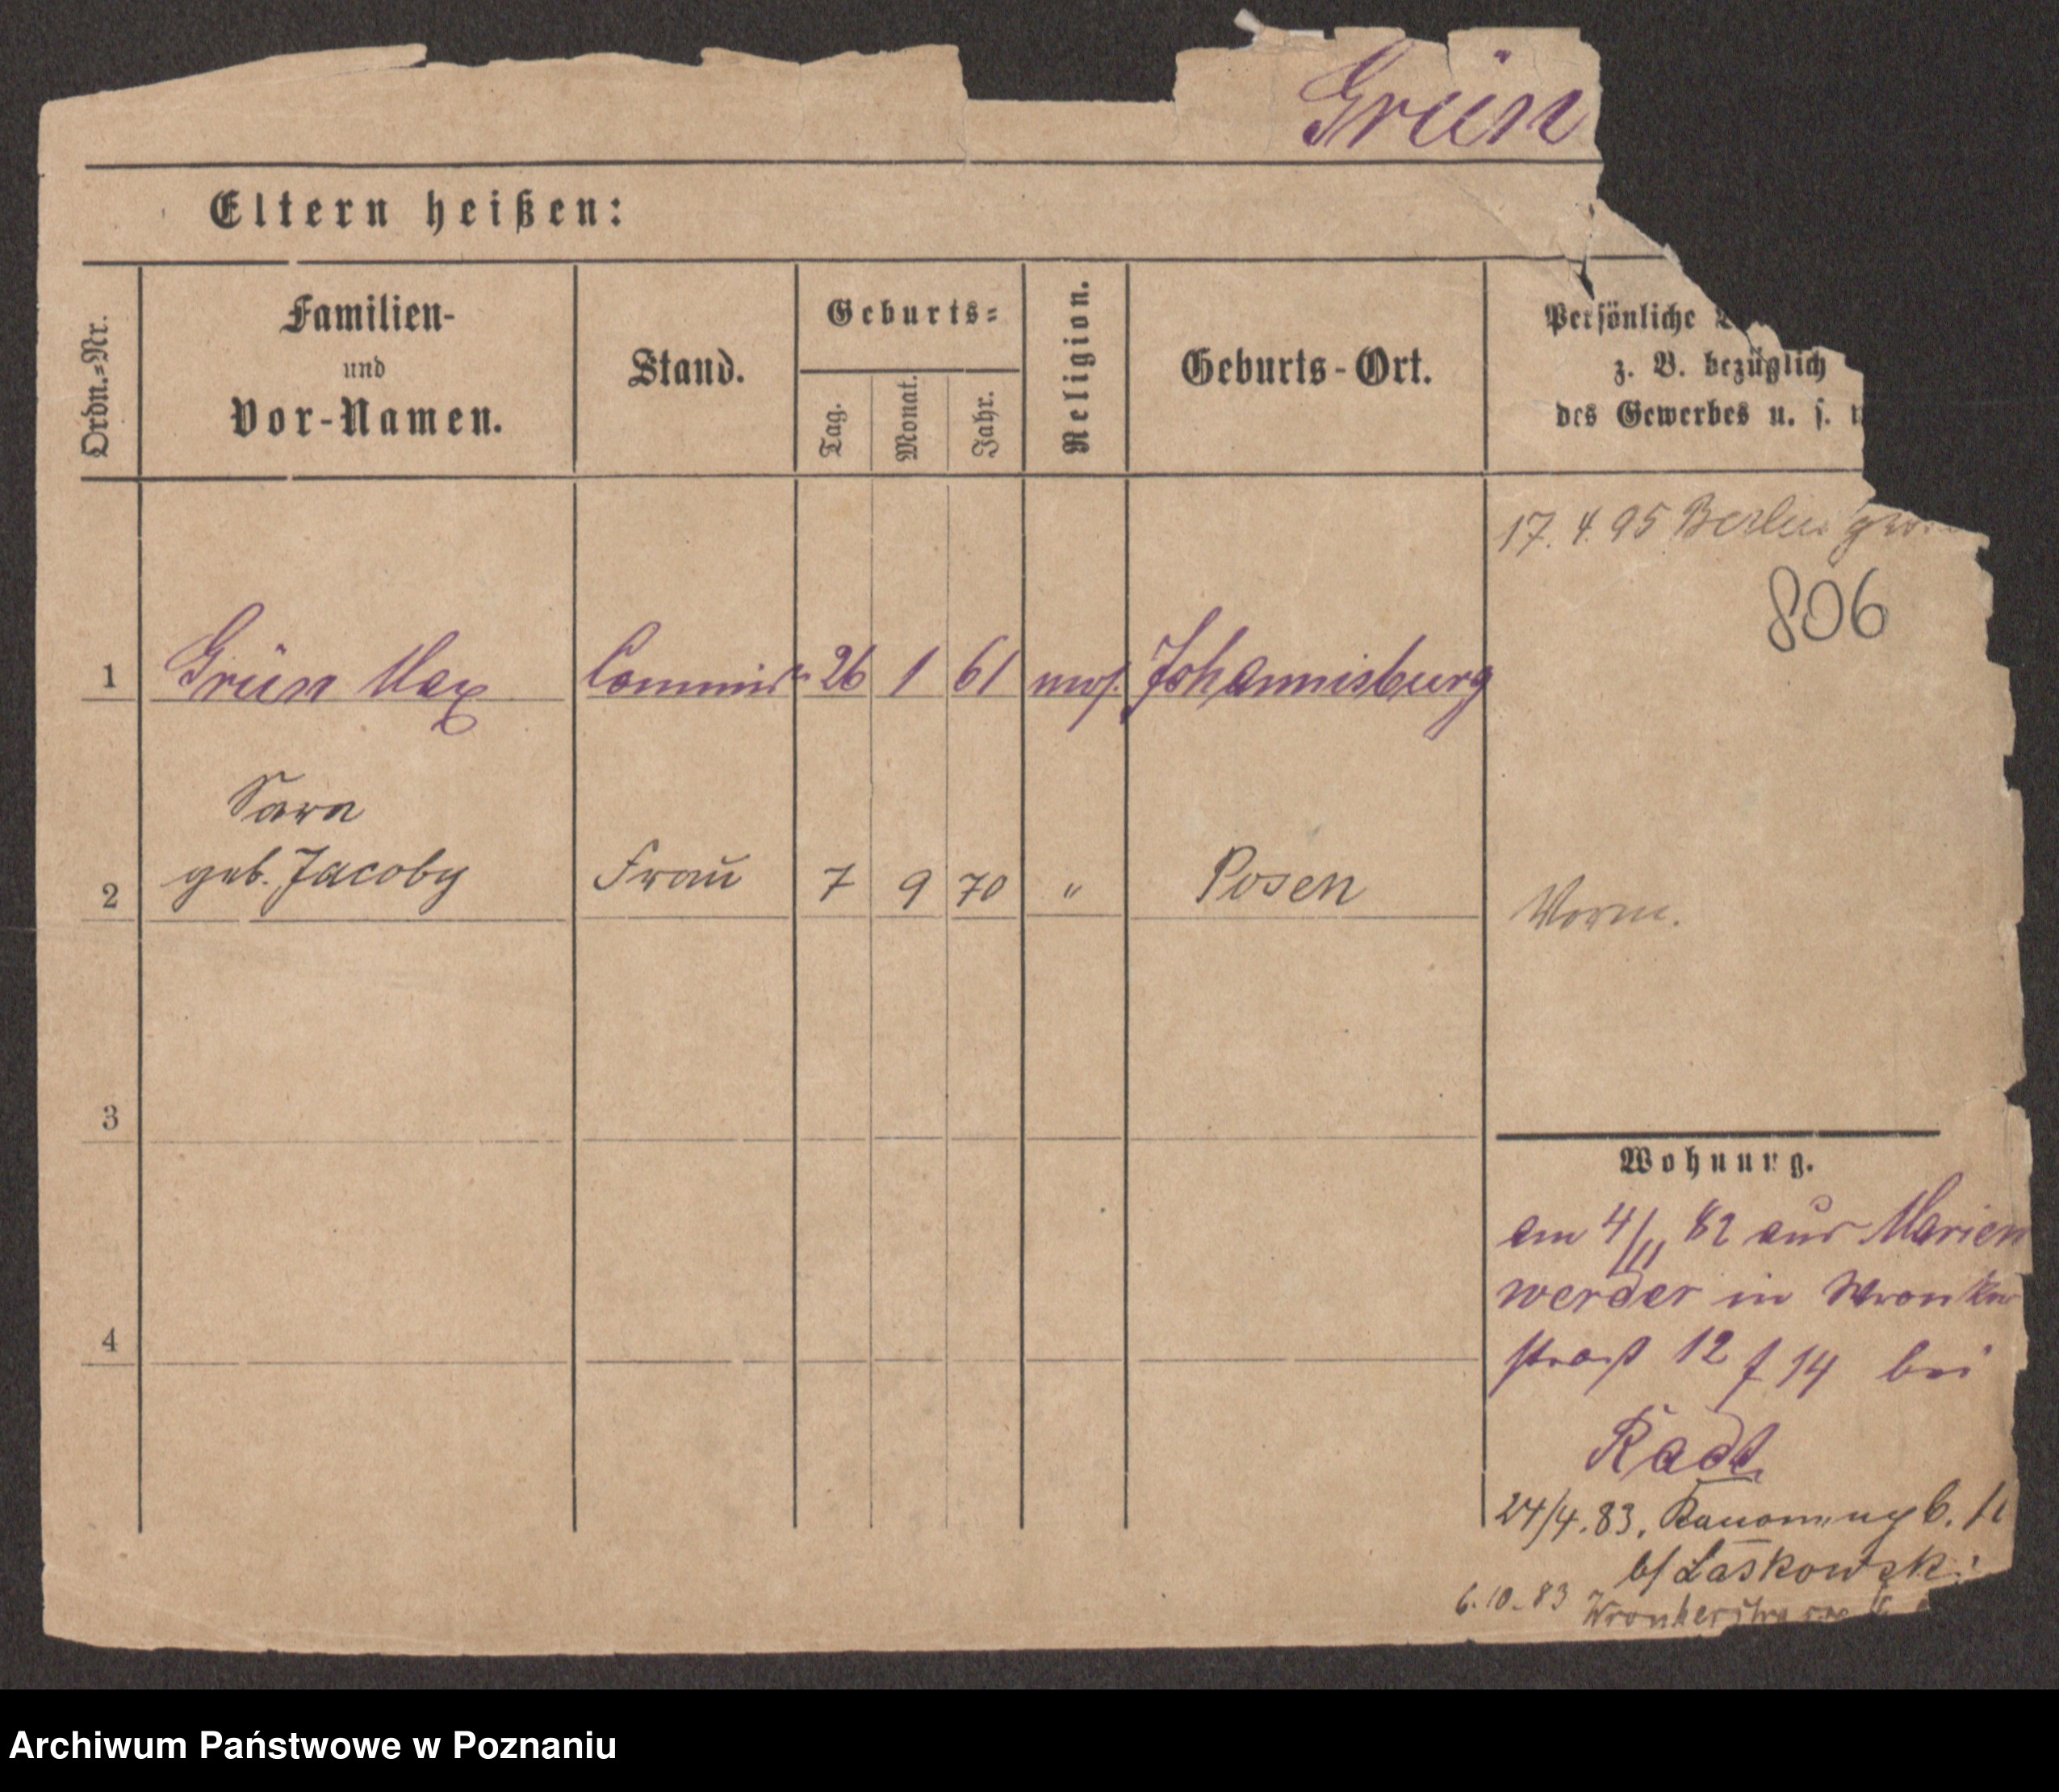 Grün
Eltern heißen:
Ordn.-Nr.
Familien-
und
Vor-Namen.
Stand.
Geburts-
Tag.
Monat.
Jahr.
Religion.
Geburts-Ort.
Persönliche
z. B. bezüglich
des Gewerbes u. s.
17. 4. 95 Berlin
806
1 Grün Max Commis 26 1 61 mos. Johannisburg
Sara
2 geb. Jacoby Frau 7 9 70 " Posen
3
Wohnung.
am 4/11 82 aus Marien
werder in Wronker
4
straß 12 14 bei
Radt
24/4. 83.
b/ Laskowski
6.10.83 Wronkerstrasse
Archiwum Państwowe w Poznaniu